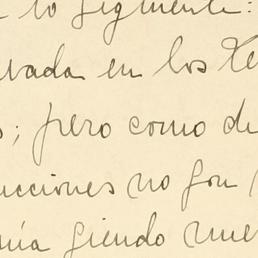 lo siguiente:
vada en los
; pero como de
ucciones no son
nía siendo nue